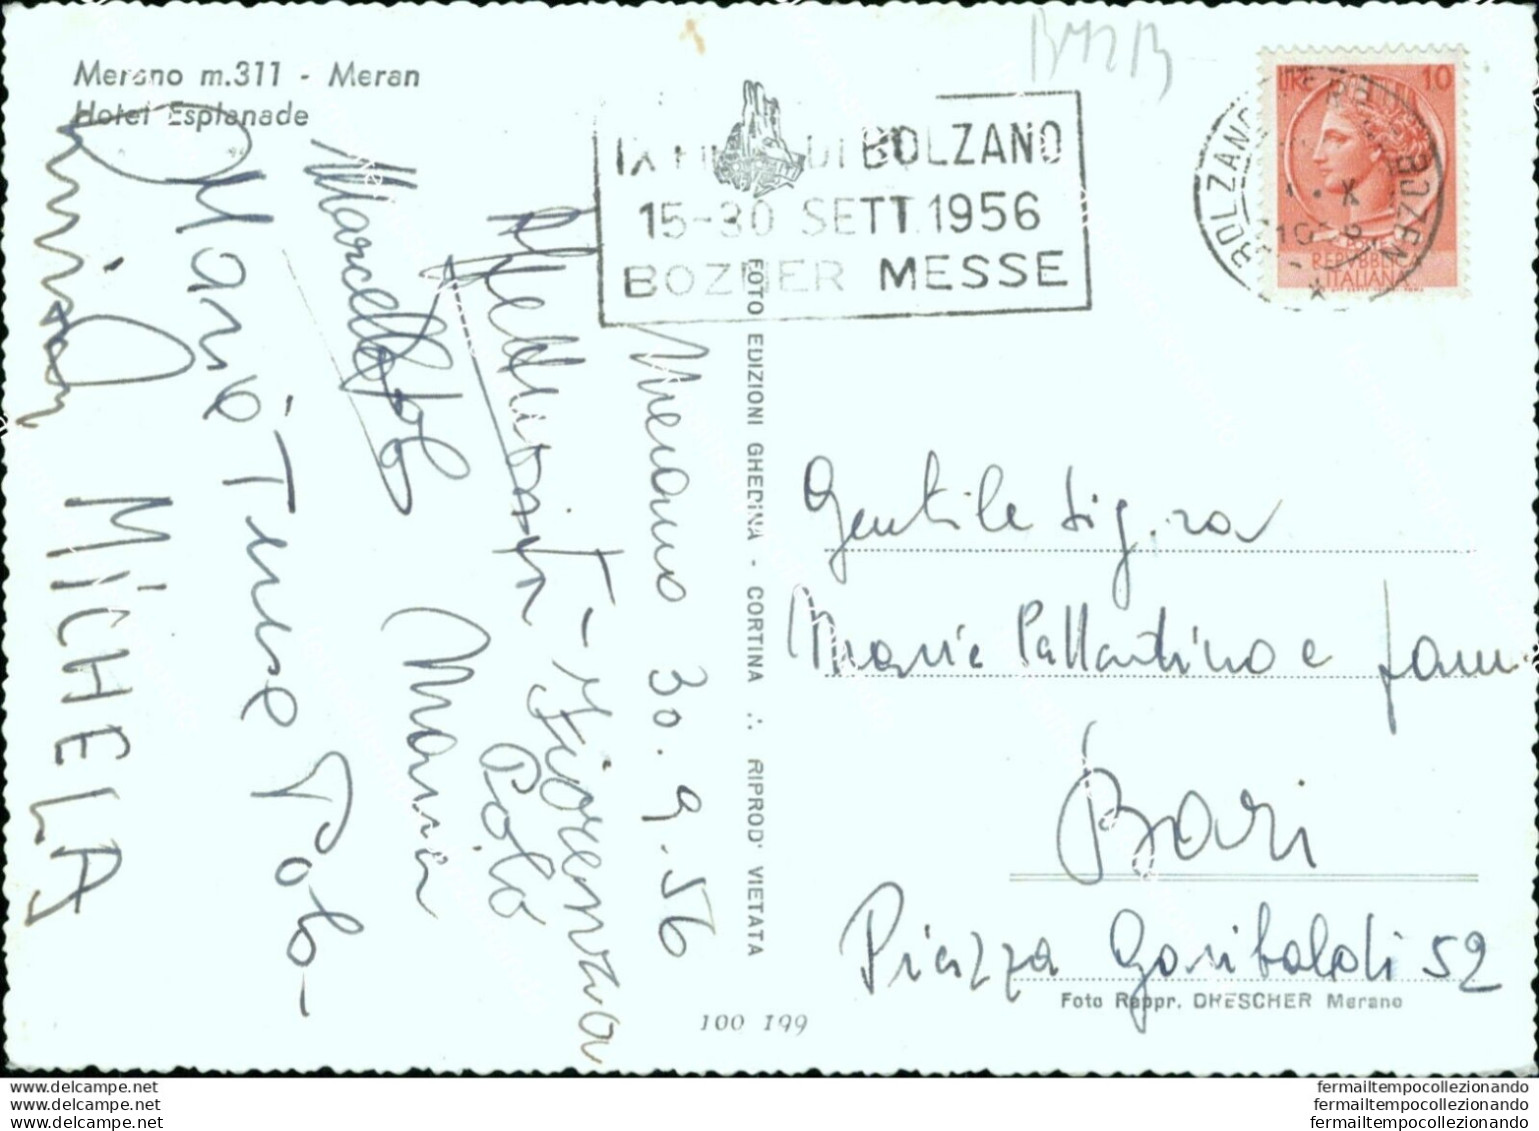 Merano m.311 - Meran
Hotel Esplanade
IX FIERA DI BOLZANO
15-30 SETT. 1956
BOZNER MESSE
BOLZANO
BOZEN
LIRE 10
REPUBBLICA
ITALIANA
Merano 30.9.56
Fiorenza
Polo
Maria
Marcello Polo
Mario Polo
MICHELA
FOTO EDIZIONI GHEDINA - CORTINA ∴ RIPROD' VIETATA
Gentile Sig.ra
Maria Pallantino e fam
Bari
Piazza Garibaldi 52
Foto Rappr. DRESCHER Merano
100 199
delcampe.net
delcampe.net
delcampe.net
fermailtempocollezionando
fermailtempocollezionando
fermailtempocollezionando